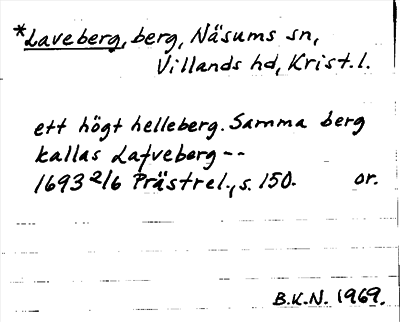 *Laveberg, berg, Näsums sn,
Villands hd, Krist.l.
ett högt helleberg. Samma berg
kallas Lafveberg--
1693 2/6 Prästrel., s. 150. or.
B.K.N. 1969.